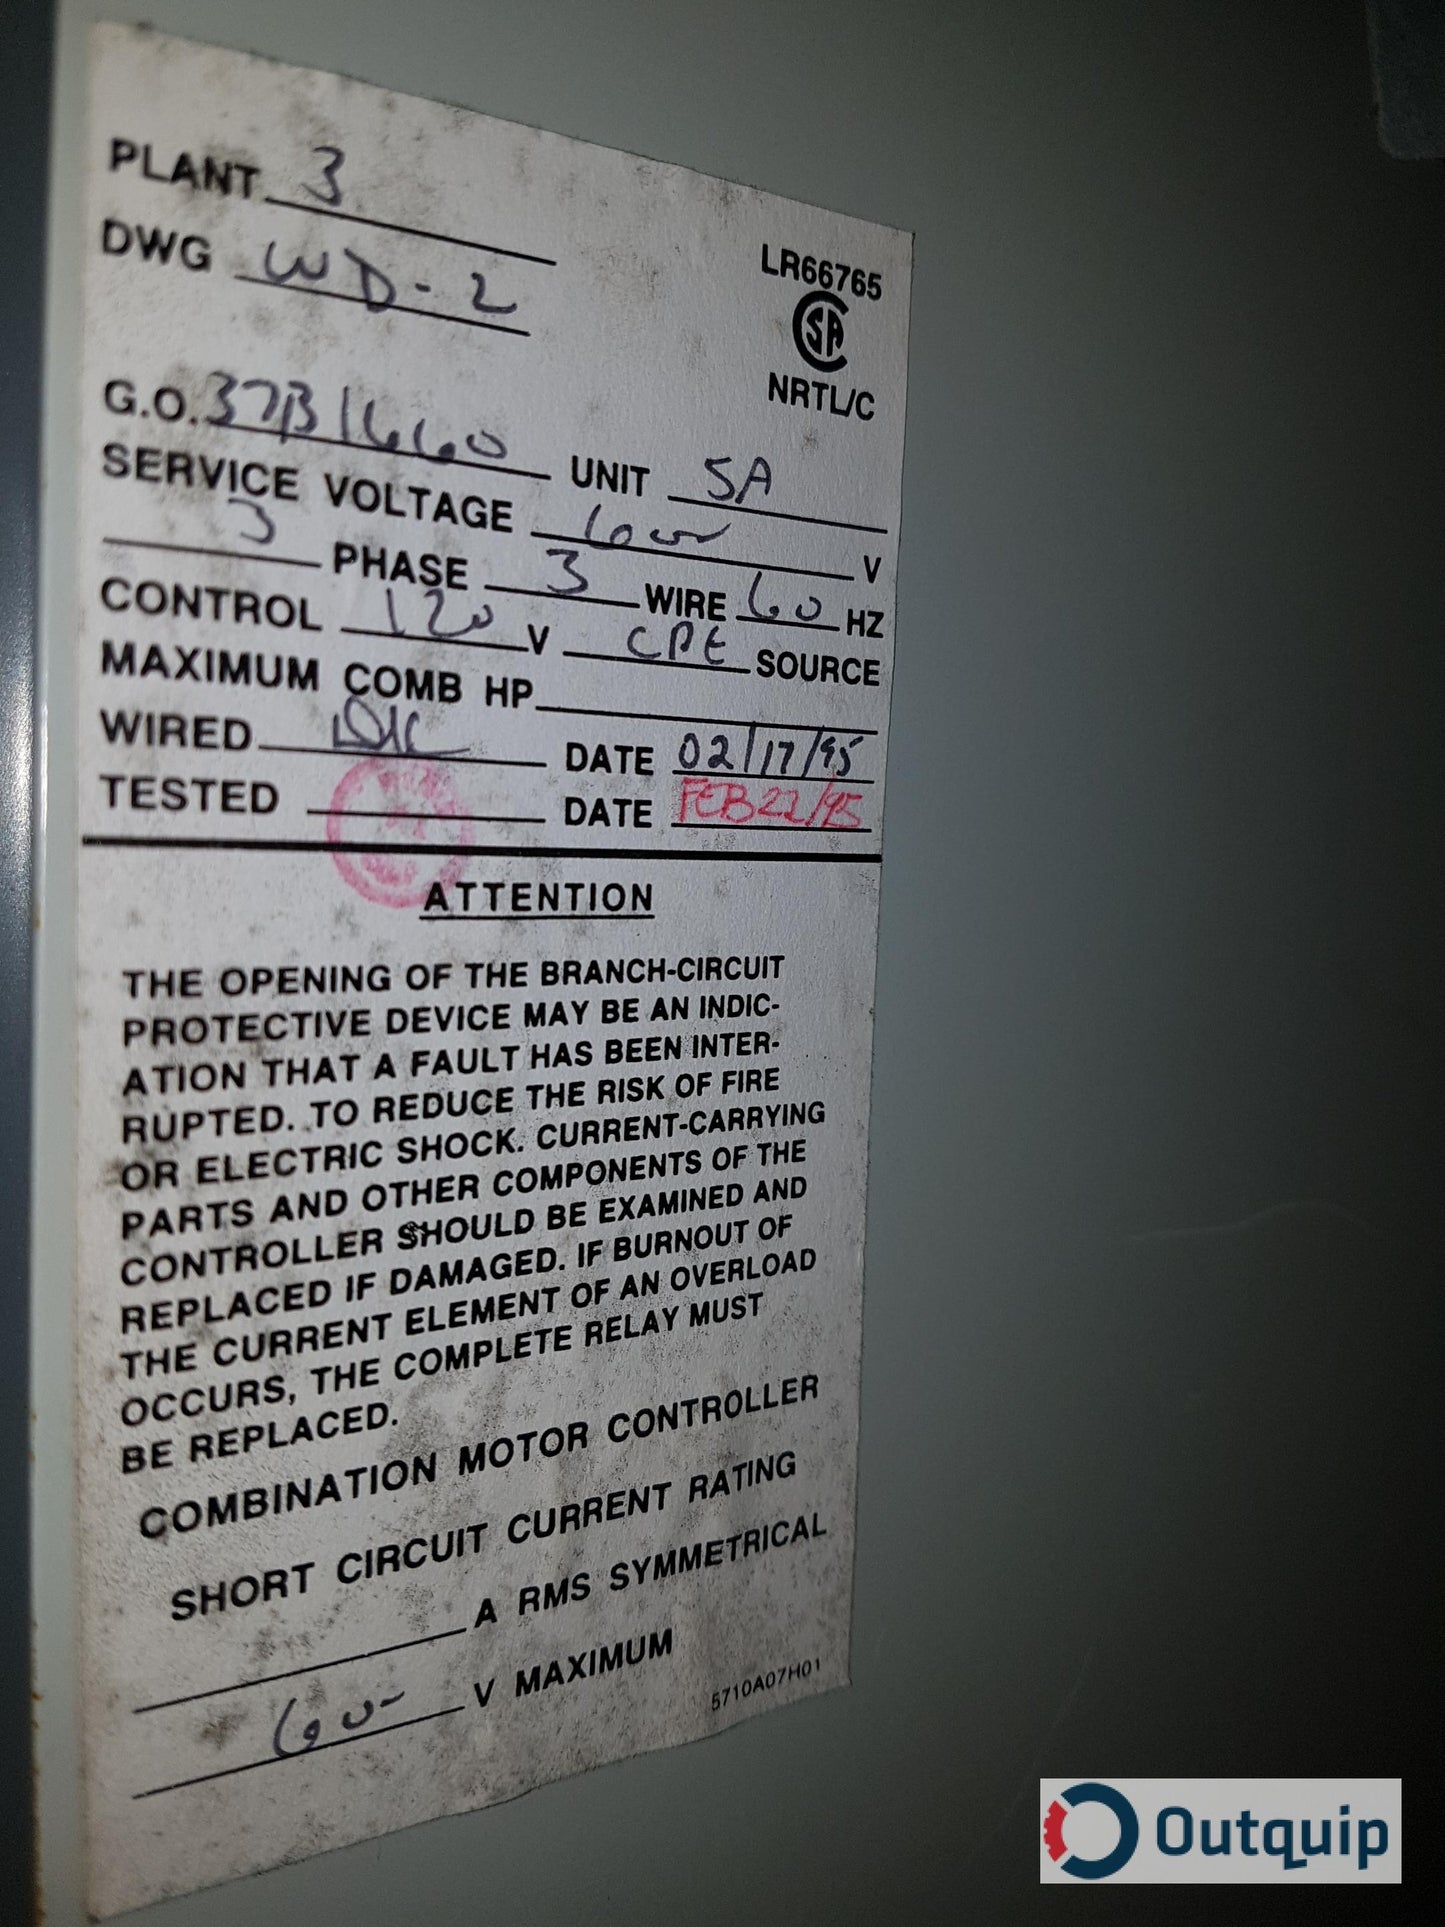 PLANT 3
DWG WD-2
LR66765
CSA
NRTL/C
G.O. 37B1660 UNIT 5A
SERVICE VOLTAGE 600 V
3 PHASE 3 WIRE 60 HZ
CONTROL 120 V CPT SOURCE
MAXIMUM COMB HP
WIRED DATE 02/17/95
TESTED DATE FEB 22/95
ATTENTION
THE OPENING OF THE BRANCH-CIRCUIT
PROTECTIVE DEVICE MAY BE AN INDIC-
ATION THAT A FAULT HAS BEEN INTER-
RUPTED. TO REDUCE THE RISK OF FIRE
OR ELECTRIC SHOCK. CURRENT-CARRYING
PARTS AND OTHER COMPONENTS OF THE
CONTROLLER SHOULD BE EXAMINED AND
REPLACED IF DAMAGED. IF BURNOUT OF
THE CURRENT ELEMENT OF AN OVERLOAD
OCCURS, THE COMPLETE RELAY MUST
BE REPLACED.
COMBINATION MOTOR CONTROLLER
SHORT CIRCUIT CURRENT RATING
A RMS SYMMETRICAL
600 V MAXIMUM
5710A07H01
Outquip